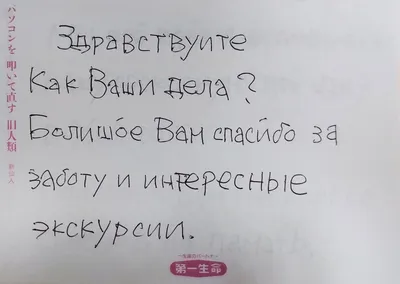 パソコンを 叩いて直す 旧人類
Здравствуите
Как Ваши дела?
Болишо́е Вам спаси́бо за
заботу и интересные
экскурсии.
一生涯のパートナー
第一生命